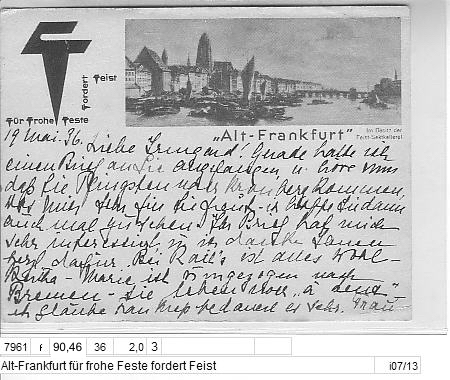 Für Frohe Feste
fordert Feist
„Alt-Frankfurt"
Im Besitz der
Feist-Sektkellerei
19 Mai. 36. Liebe Irmgard! Gerade hatte ich
einen Brief an Sie angefangen u. höre nun
daß Sie Pfingsten nach Kronberg kommen,
auch mal zu sehen. Ihr Brief hat mich
sehr interessiert, u. ich danke Ihnen
dafür. Bei Kail's ist alles wohl -
Bertha - Marie ist umgezogen nach
Bremen - Sie leben nun „à deux"
ich glaube bedauert es sehr. Frau
7961 f 90,46 36 2,0 3
Alt-Frankfurt für frohe Feste fordert Feist i07/13